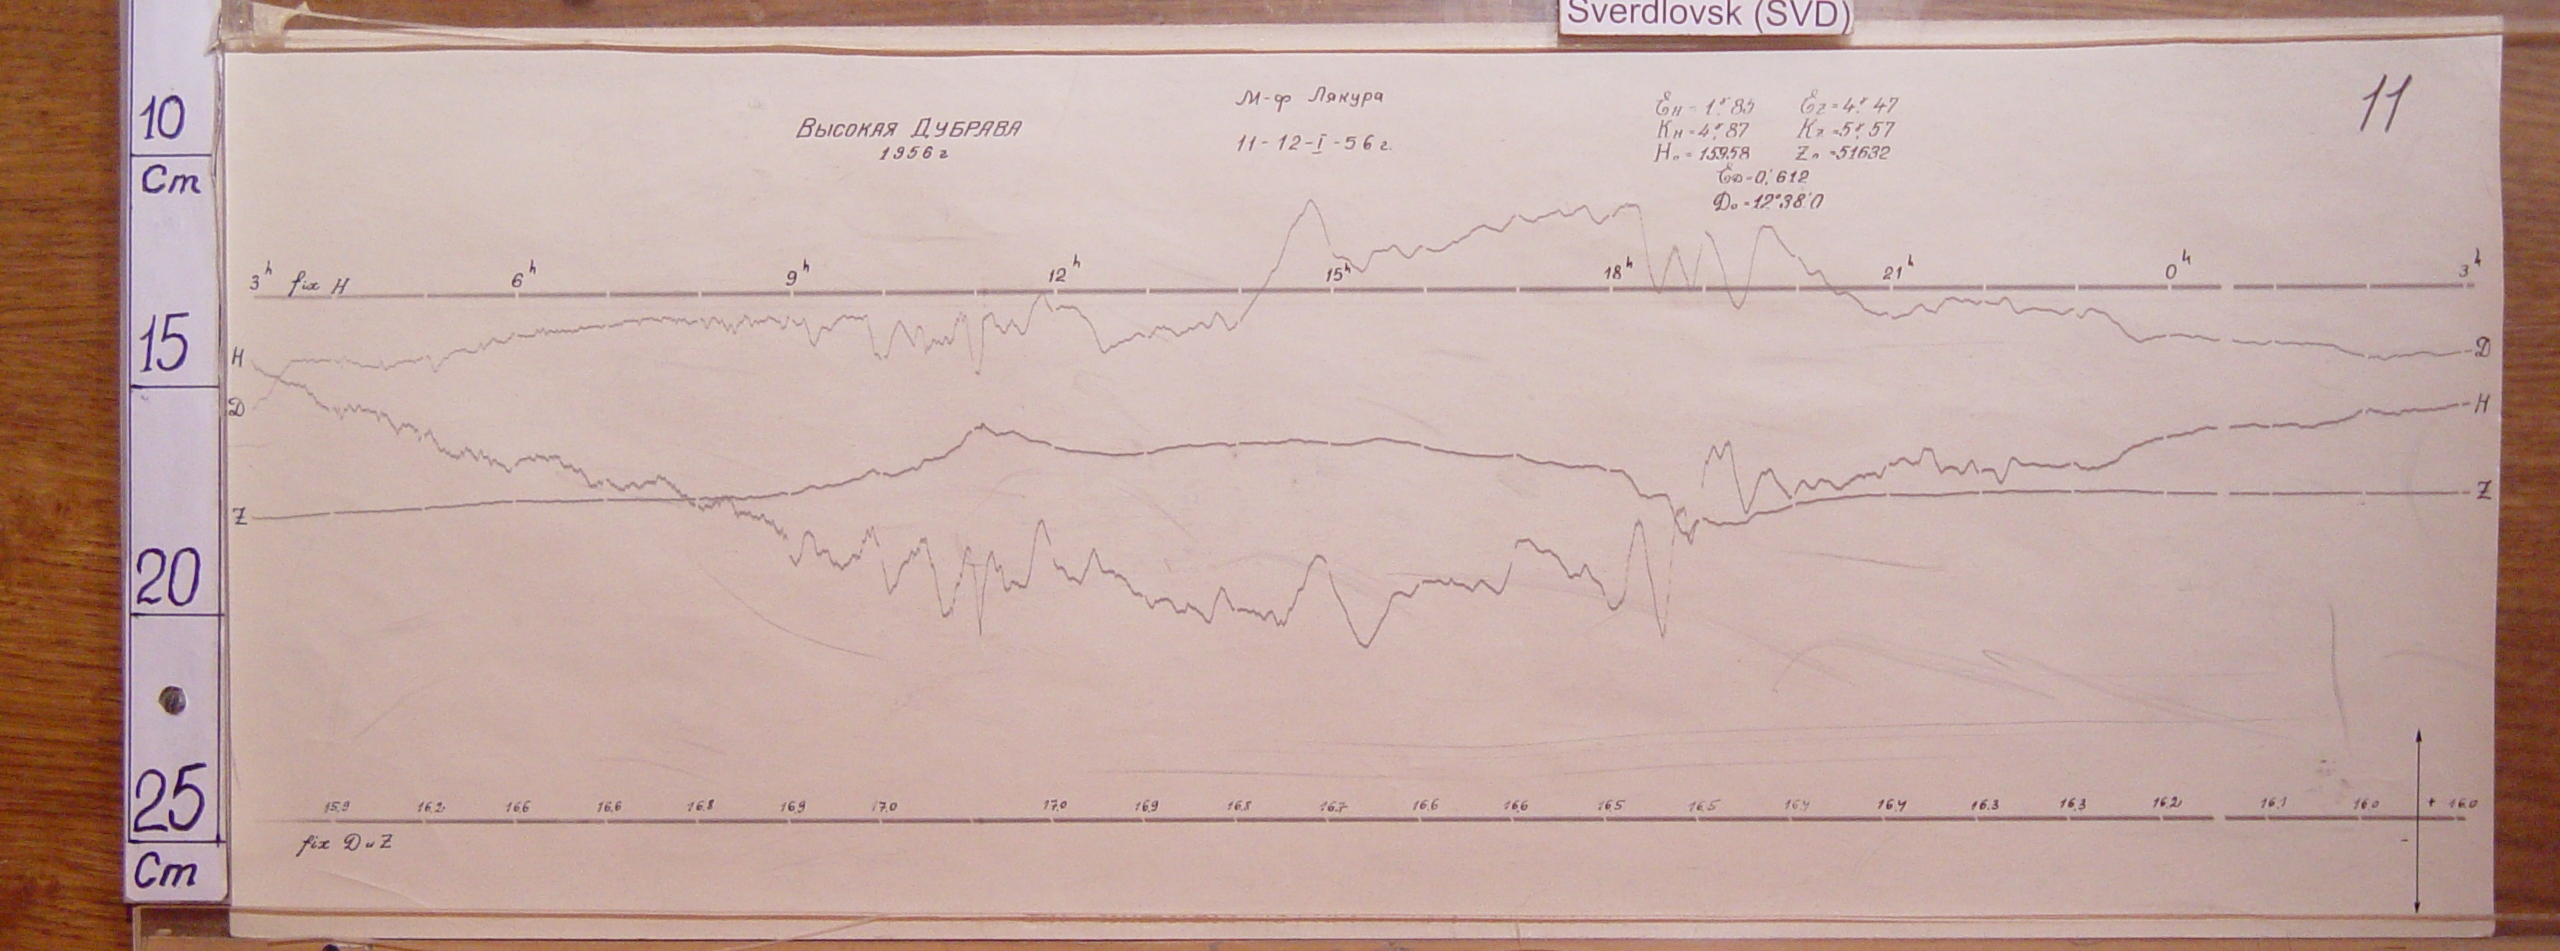 Sverdlovsk (SVD)
11
М-ф Лякура
ВЫСОКАЯ ДУБРАВА
1956 г
11-12-I-56 г.
Ɛн = 1.ᵞ85 Ɛz = 4.ᵞ47
Kн = 4.ᵞ87 Kz = 5.ᵞ57
H₀ = 15958 Z₀ = 51632
ƐD = 0.′612
D₀ = 12°38.′0
10
Cm
15
20
25
Cm
3ʰ fix H 6ʰ 9ʰ 12ʰ 15ʰ 18ʰ 21ʰ 0ʰ 3ʰ
H
D
Z
D
H
Z
15.9 16.2 16.6 16.6 16.8 16.9 17.0 17.0 16.9 16.8 16.7 16.6 16.6 16.5 16.5 16.4 16.4 16.3 16.3 16.2 16.1 16.0 + 16.0
-
fix D и Z